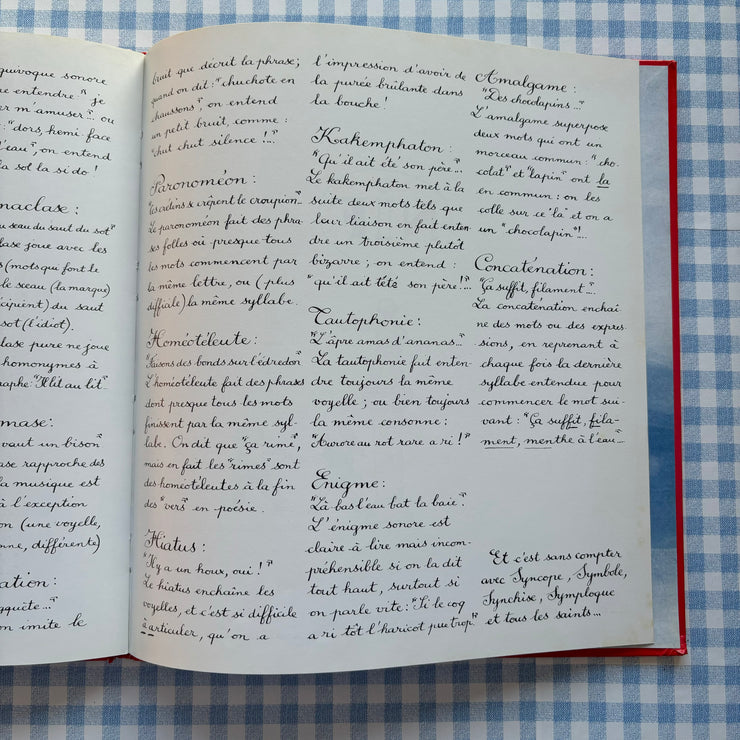 quivoque sonore
entendre". je
m'amuser". ou
: "dors, hemi face
l'eau", on entend
la sol la si do!
naclase :
u seau du saut du sot"
lase joue avec les
s (mots qui font le
le sceau (la marque)
cipient) du saut
sot (l'idiot).
clase pure ne joue
homonymes à
raphe: "Il lit au lit"
mase :
vaut un bison"
ase rapproche des
la musique est
à l'exception
on (une voyelle,
nne, différente)
ation :
gguête..."
on imite le
bruit que décrit la phrase;
quand on dit: "chuchote en
chaussons", on entend
un petit bruit, comme :
"chut chut silence !..."
Paronoméon :
"Les crétins crèvent le croupion"
Le paronoméon fait des phra-
ses folles où presque tous
les mots commencent par
la même lettre, ou (plus
difficile) la même syllabe.
Homéotéleute :
"Faisons des bonds sur l'édredon"
L'homéotéleute fait des phrases
dont presque tous les mots
finissent par la même syl-
labe. On dit que "ça rime",
mais en fait les "rimes" sont
des homéotéleutes à la fin
des "vers" en poésie.
Hiatus :
"Il y a un houx, oui !"
Le hiatus enchaîne les
voyelles, et c'est si difficile
à articuler, qu'on a
l'impression d'avoir de
la purée brûlante dans
la bouche !
Kakemphaton :
"Qu'il ait été son père"...
Le kakemphaton met à la
suite deux mots tels que
leur liaison en fait enten-
dre un troisième plutôt
bizarre ; on entend :
"qu'il ait tété son père !"...
Tautophonie :
"L'âpre amas d'ananas..."
La tautophonie fait enten-
dre toujours la même
voyelle ; ou bien toujours
la même consonne :
"Aurore au rot rare a ri !"
Enigme :
"Là-bas l'eau bat la baie".
L'énigme sonore est
claire à lire mais incom-
préhensible si on la dit
tout haut, surtout si
on parle vite : "Si le coq
a ri tôt l'haricot pue trop."
Amalgame :
"Des chocolapins..."
L'amalgame superpose
deux mots qui ont un
morceau commun : "cho-
colat" et "lapin" ont la
en commun : on les
colle sur ce "la" et on a
un "chocolapin"!...
Concaténation :
"Ça suffit, filament"...
La concaténation enchaî-
ne des mots ou des expres-
sions, en reprenant à
chaque fois la dernière
syllabe entendue pour
commencer le mot sui-
vant : "Ça suffit, fila-
ment, menthe à l'eau"...
Et c'est sans compter
avec Syncope, Symbole,
Synchise, Symploque
et tous les saints...